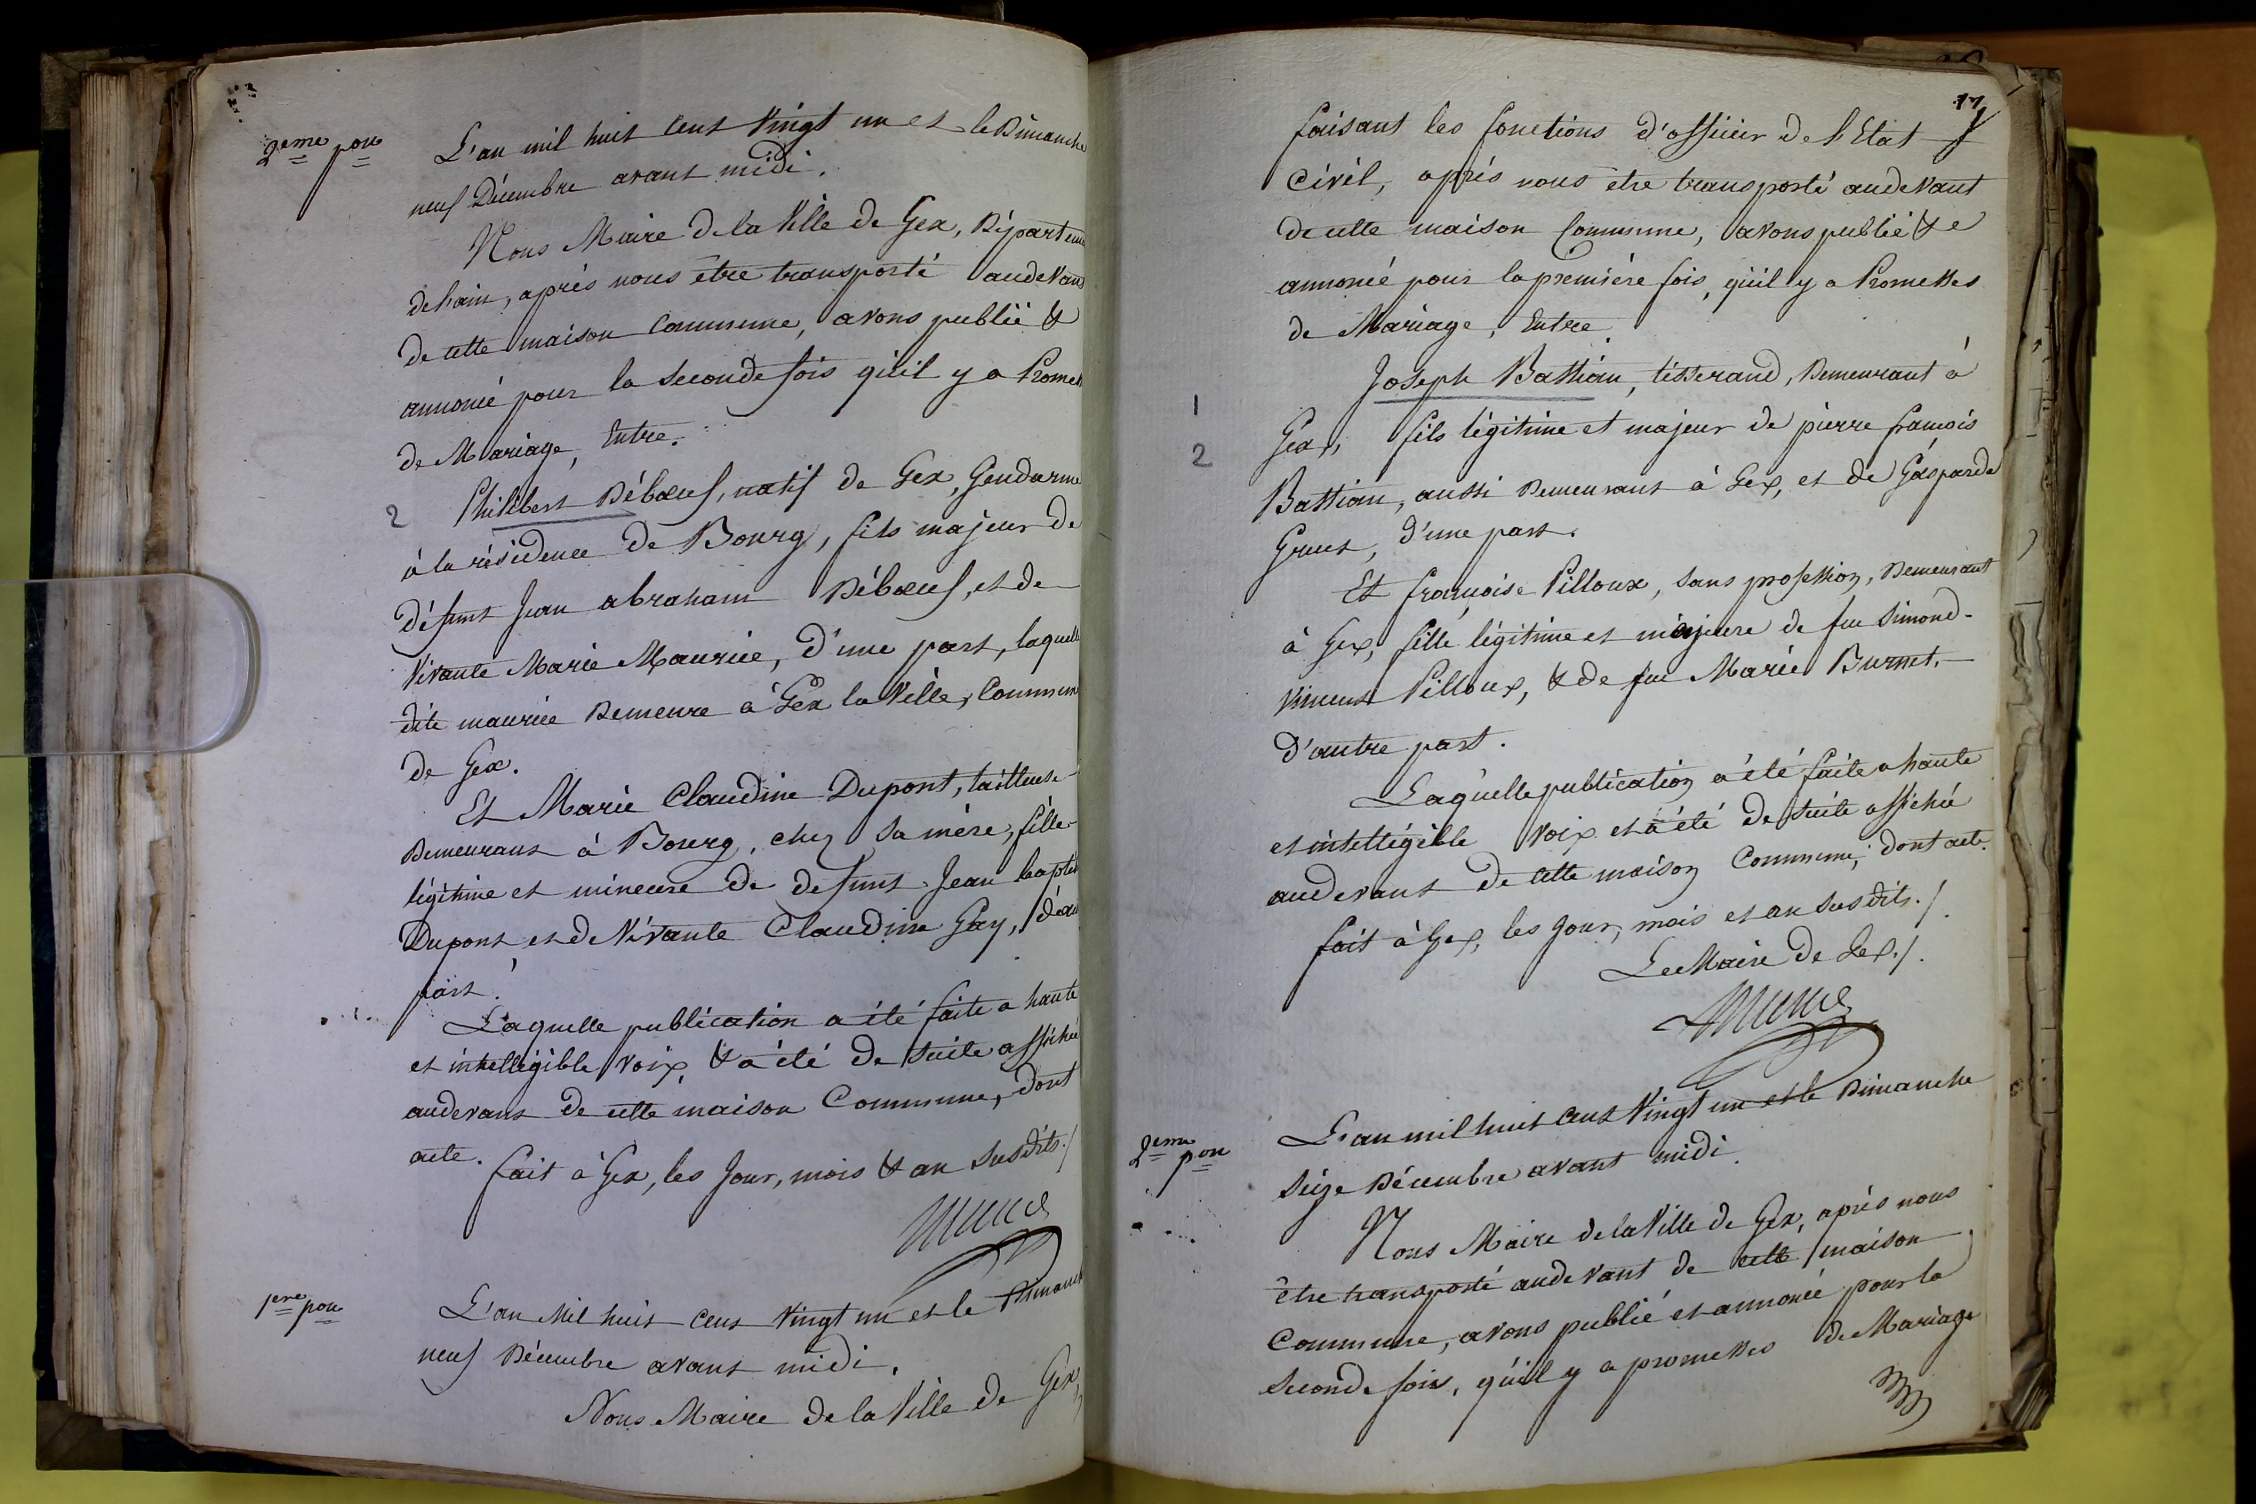 2eme pon
L'an mil huit cent vingt un et le Dimanche
neuf Décembre avant midi.
Nous Maire de la Ville de Gex, Départeme
de l'ain, après nous être transporté audevant
de cette maison Commune, avons publié &
annoncé pour la seconde fois qu'il y a Promes
de Mariage, Entre.
2
Philibert Débœuf, natif de Gex, Gendarme
à la résidence de Bourg, fils majeur de
défunt Jean abraham Débœuf, et de
vivante Marie Mauriée, d'une part, laquelle
dite mauriée Demeure à Gex la Ville, Commune
de Gex.
Et Marie Claudine Dupont, tailleuse
Demeurant à Bourg, chez sa mère, fille
légitime et mineure de defunt Jean baptist
Dupont et de Vivante Claudine Gay, d'au
part.
Laquelle publication a été faite a haute
et intelligible voix, & a été de suite affichée
audevant de cette maison Commune, dont
acte.
fait à Gex, les Jour, mois & an susdits./
1ere pon
L'an Mil huit cent vingt un et le Dimanch
neuf Décembre avant midi.
Nous Maire de la Ville de Gex,
17
faisant les fonctions d'officier de l'Etat
Civil, après nous être transporté audevant
de cette maison Commune, avons publié &
annoncé pour la première fois, qu'il y a Promesses
de Mariage, Entre.
1
Joseph Battian, tisserand, Demeurant à
2
Gex, fils légitime et majeur de pierre françois
Battian, aussi Demeurant à Gex, et de Gasparde
Gruet, d'une part.
Et françoise Pilloux, sans profession, Demeurant
à Gex, fille légitime et majeure de feu Simond-
Vincent Pilloux, & de feu Marie Burnet,
d'autre part.
Laquelle publication a été faite a haute
et intelligible voix et a été de suite affichée
audevant de cette maison Commune, dont acte.
fait à Gex, les Jour, mois et an susdits./.
Le Maire de Gex./.
2eme pon
L'an mil huit cent vingt un et le Dimanche
Seize Décembre avant midi.
Nous Maire de la Ville de Gex, après nous
être transporté audevant de cette maison
Commune, avons publié et annoncé pour la
seconde fois, qu'il y a promesses de Mariage